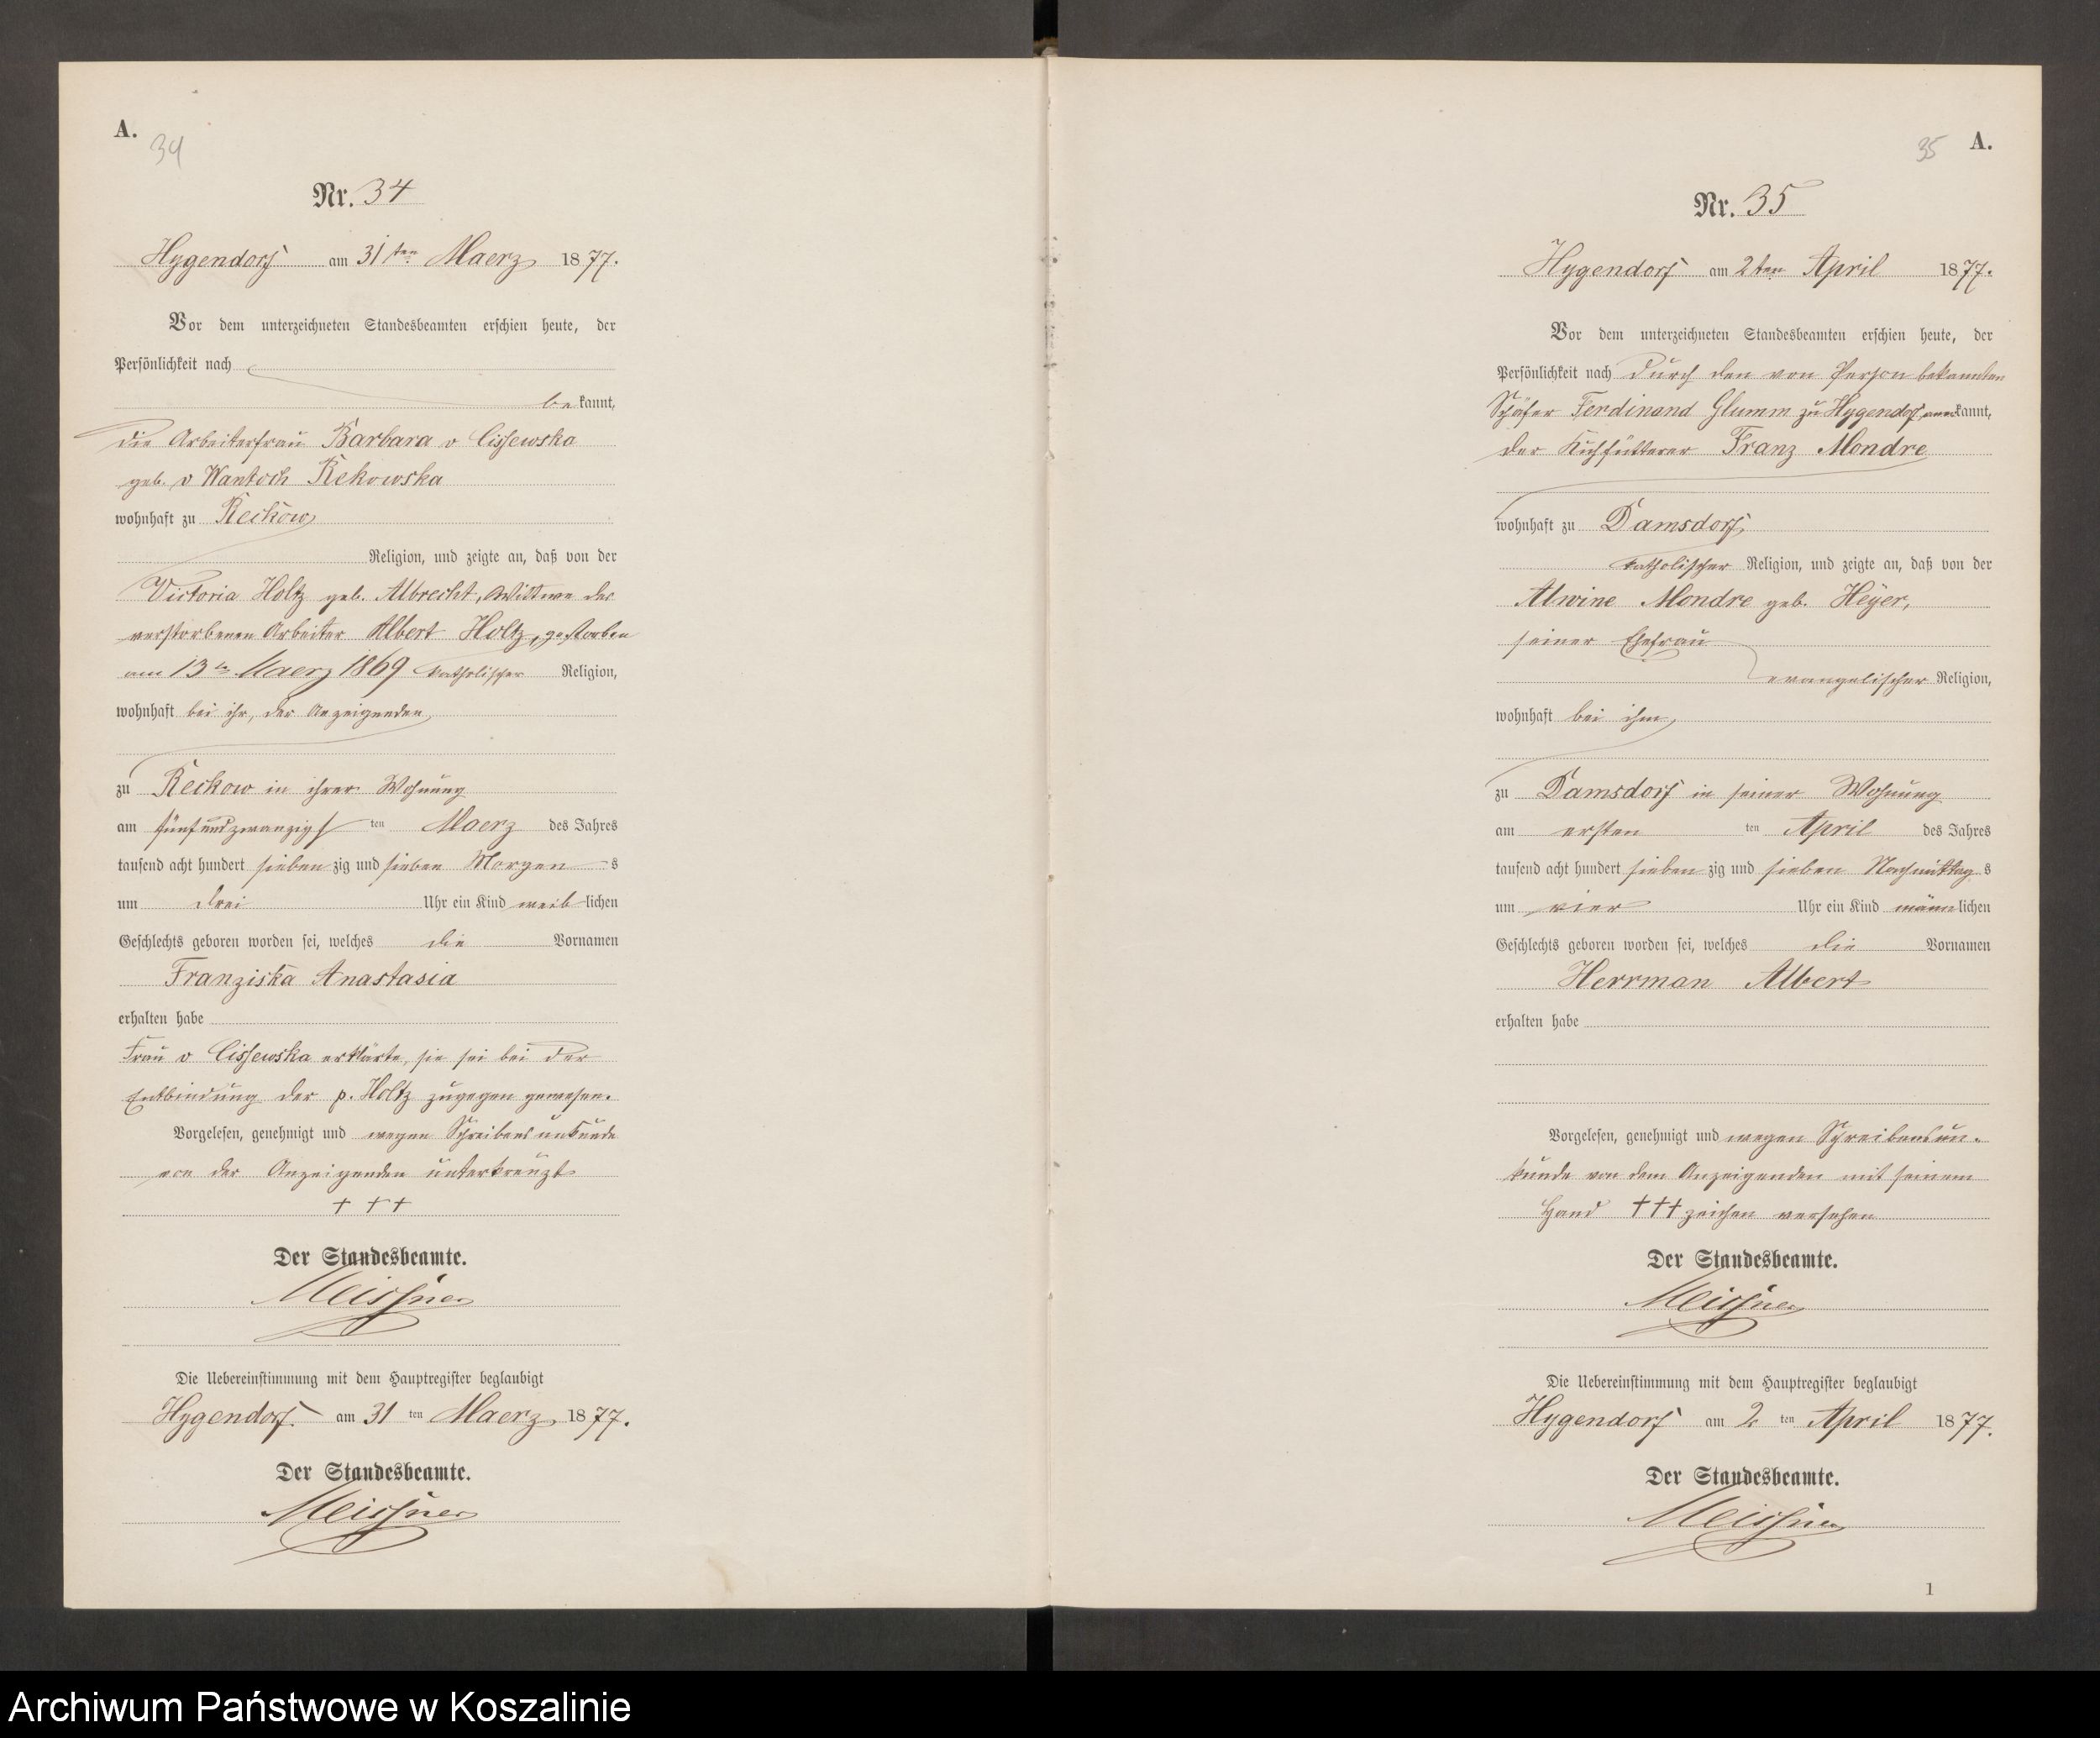 A.
34
Nr. 34
Hygendorf am 31ten Maerz 1877.
Vor dem unterzeichneten Standesbeamten erschien heute, der
Persönlichkeit nach
bekannt,
die Arbeiterfrau Barbara v Cissewska
geb. v Wantoch Rekowska
wohnhaft zu Reckow
Religion, und zeigte an, daß von der
Victoria Holtz geb. Albrecht, Wittwe des
verstorbenen Arbeiter Albert Holtz, gestorben
am 13ten Maerz 1869 katholischer Religion,
wohnhaft bei ihr, der Anzeigenden
zu Reckow in ihrer Wohnung
am fünfundzwanzigsten Maerz des Jahres
tausend acht hundert siebenzig und sieben Morgens
um drei Uhr ein Kind weiblichen
Geschlechts geboren worden sei, welches die Vornamen
Franziska Anastasia
erhalten habe
Frau v Cissewska erklärte, sie sei bei der
Entbindung der p. Holtz zugegen gewesen.
Vorgelesen, genehmigt und wegen Schreibensunkunde
von der Anzeigenden unterkreuzt
+ + +
Der Standesbeamte.
Meissner
Die Uebereinstimmung mit dem Hauptregister beglaubigt
Hygendorf am 31ten Maerz 1877.
Der Standesbeamte.
Meissner
35 A.
Nr. 35
Hygendorf am 2ten April 1877.
Vor dem unterzeichneten Standesbeamten erschien heute, der
Persönlichkeit nach durch den von Person bekannten
Schäfer Ferdinand Glumm zu Hygendorf anerkannt,
der Kuhfütterer Franz Mondre
wohnhaft zu Damsdorf,
katholischer Religion, und zeigte an, daß von der
Alwine Mondre geb. Heyer,
seiner Ehefrau
evangelischer Religion,
wohnhaft bei ihm,
zu Damsdorf in seiner Wohnung
am ersten ten April des Jahres
tausend acht hundert siebenzig und sieben Nachmittags
um vier Uhr ein Kind männlichen
Geschlechts geboren worden sei, welches die Vornamen
Herrman Albert
erhalten habe
Vorgelesen, genehmigt und wegen Schreibensun-
kunde von dem Anzeigenden mit seinem
Hand +++ zeichen versehen
Der Standesbeamte.
Meissner
Die Uebereinstimmung mit dem Hauptregister beglaubigt
Hygendorf am 2ten April 1877.
Der Standesbeamte.
Meissner
1
Archiwum Państwowe w Koszalinie